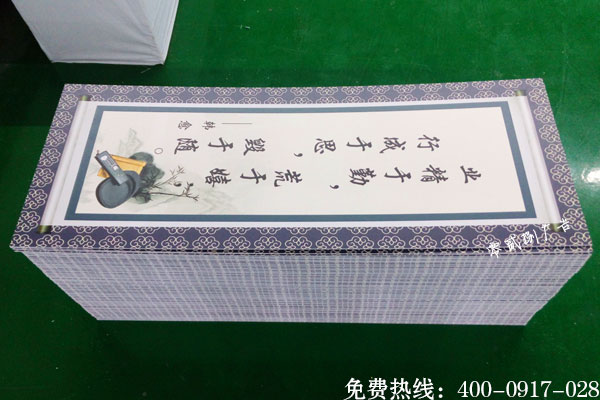 业精于勤，荒于嬉
行成于思，毁于随。
——韩愈
零贰捌广告
免费热线：400-0917-028